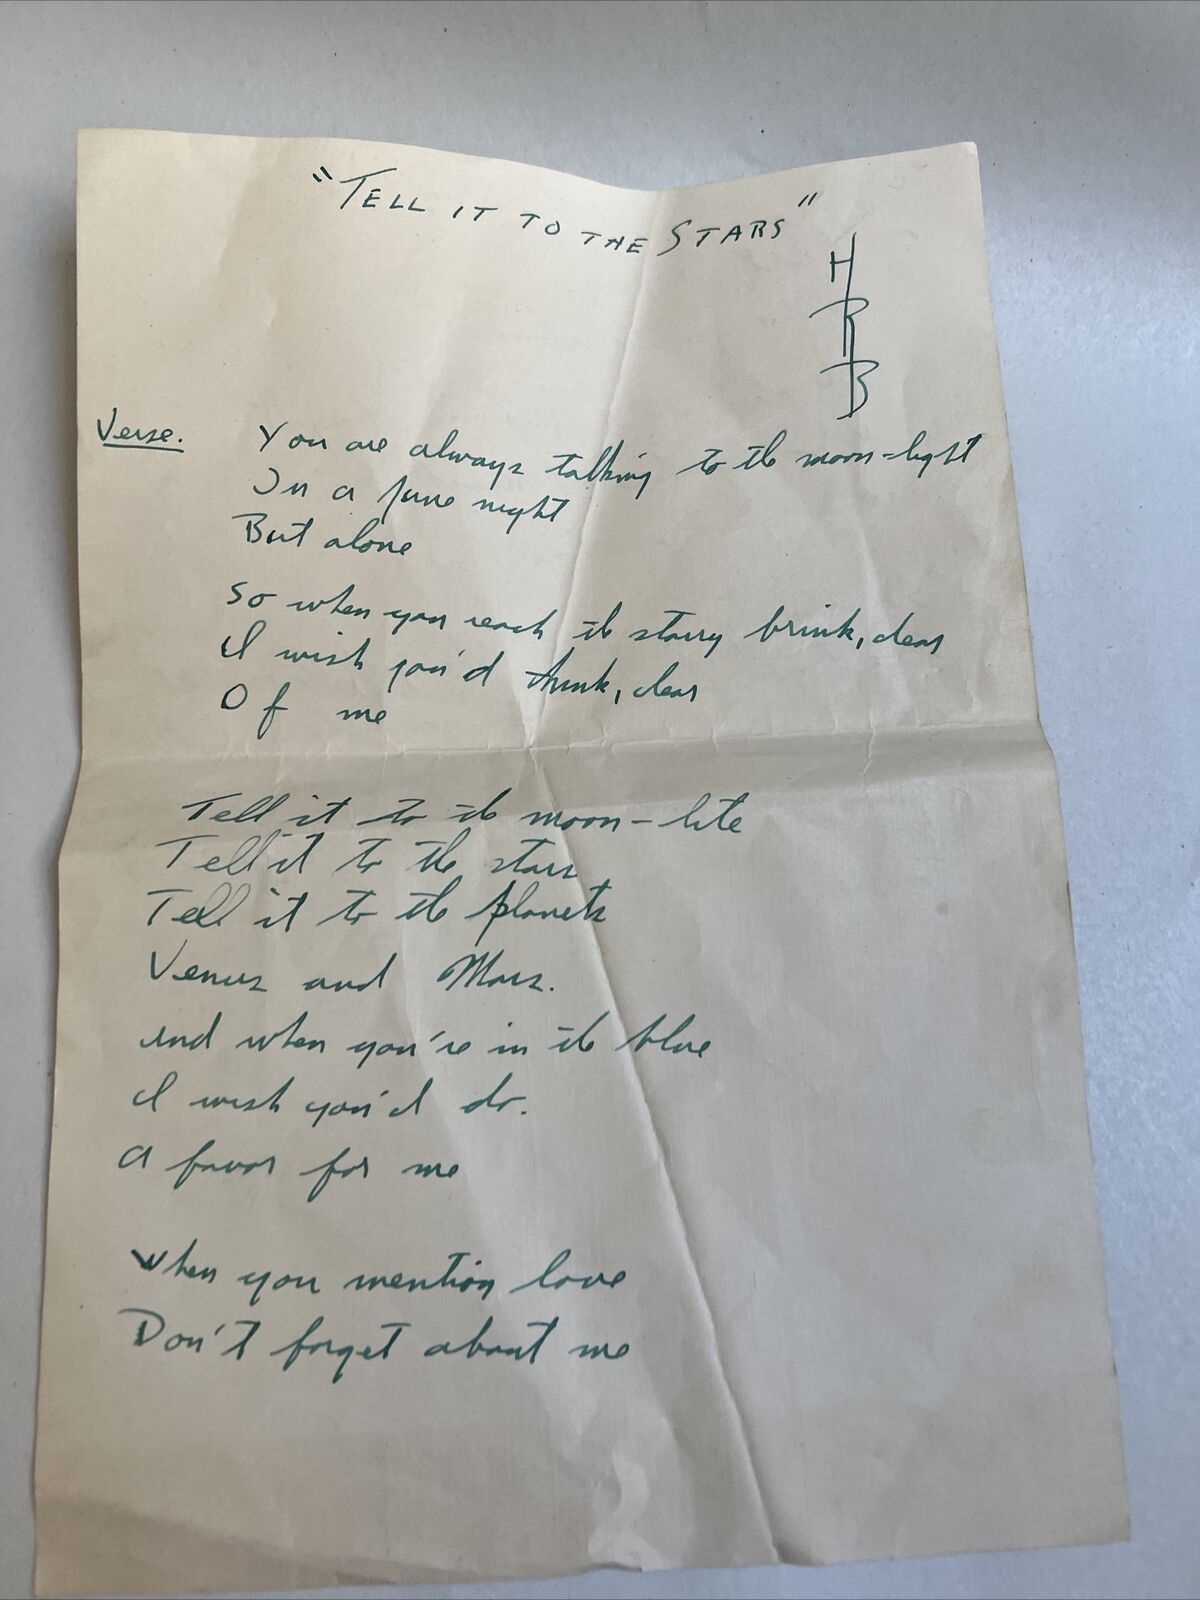 "TELL IT TO THE STARS"
H
R
B
Verse.
You are always talking to the moon-light
In a June night
But alone
So when you reach the starry brink, dear
I wish you'd think, dear
Of me
Tell it to the moon-lite
Tell it to the stars
Tell it to the planets
Venus and Mars.
And when you're in the blue
I wish you'd do.
A favor for me
When you mention love
Don't forget about me